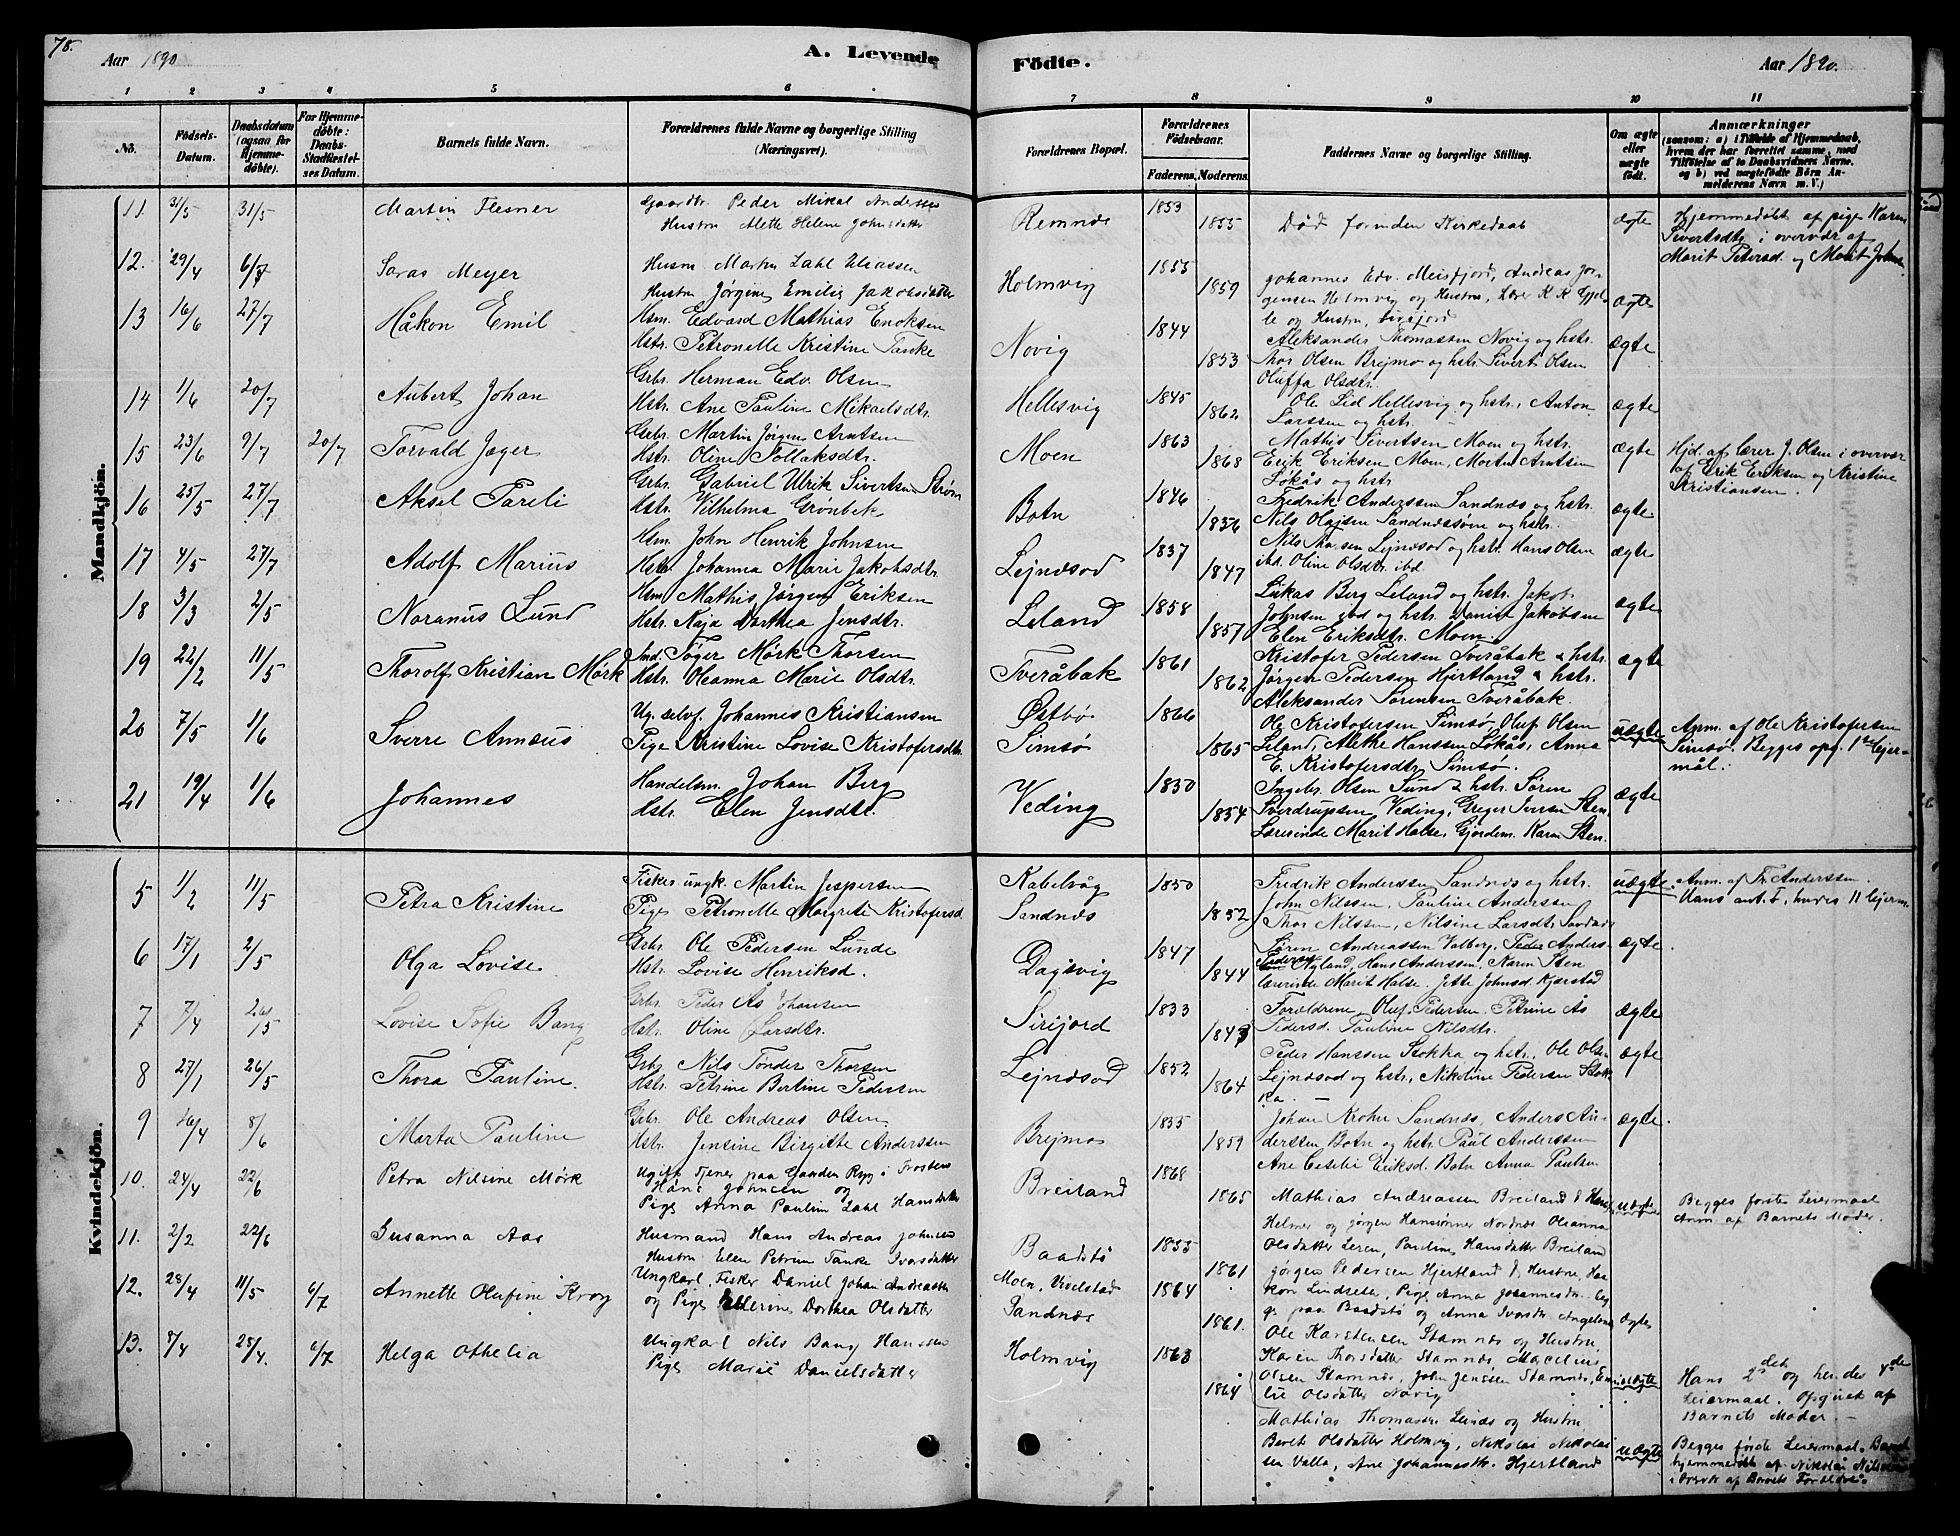 78.
Aar 1890
A. Levende
Födte.
Aar 1890.
1 2 3 4 5 6 7 8 9 10 11
No.
Födsels-Datum.
Daabsdatum (ogsaa for Hjemmedöbte).
For Hjemmedöbte: Daabs-Stadfæstelses Datum.
Barnets fulde Navn.
Forældrenes fulde Navne og borgerlige Stilling (Næringsvei).
Forældrenes Bopæl.
Forældrenes Födselsaar.
Faderens. Moderens.
Faddernes Navne og borgerlige Stilling.
Om ægte eller uægte födt.
Anmærkninger
(saasom: a) i Tilfælde af Hjemmedaab, hvem der har forrettet samme, med Tilföielse af to Daabsvidners Navne, og b) ved uægtefödte Börn Anmelderens Navn m. V.)
Mandkjön.
11. 3/5 31/5 Martin Flesner
Gaardbr. Peder Mikal Anderssen
Hustru Alette Helene Johnsdatter
Remnæs 1853 1855
Död forinden Kirkedaab
ægte
Hjemmedöbt af pige Karen
Sivertsdtr i overvær af
Marit Petersd. og Marit Johns
12. 29/4 6/7 Saras Meyer
Husm. Martin Zahl Eliassen
Hustru Jørgine Emilie Jakobsdatter
Holmvig 1855 1859
Johannes Edv. Meisfjord, Andreas Jør-
gensen Holmvig og Hustru, Lærer K K Gjel-
le og Hustru,
ægte
13 16/6 27/7 Håkon Emil
Hsm. Edvard Mathias Enoksen
Hstr. Petronelle Kristine Tanke
Novig 1844 1853
Aleksander Thomassen Novig og hstr.
Thor Olsen Brejmo og hstr. Sivert Olsen
Oluffa Olsdtr.
ægte
14 1/6 20/7 Aubert Johan
Grbr. Herman Edv. Olsen
Hstr. Ane Pauline Mikaelsdtr.
Hellesvig 1845 1862
Ole Lid Hellesvig og hstr., Anton
Larssen og hstr.
ægte
15 23/6 9/7 20/7 Torvald Jæger
Grbr. Martin Jörgen Arntsen
Hstr. Oline Tollaksdtr.
Moen 1863 1868
Mathis Sivertsen Moen og hstr.
Erik Eriksen Moen, Morten Arntsen
Løkås og hstr
ægte
Hjd. af lærer J. Olsen i overvær
af Erik Eriksen og Kristine
Kristiansen.
16 25/5 27/7 Aksel Pareli
Grbr. Gabriel Ulrik Sivertsen Strøm
Hstr. Vilhelma Grønbek
Botn 1846 1856
Fredrik Anderssen Sandnæs og hstr.
Nils Olajsen Sandnæssøen og hstr.
ægte.
17 4/5 27/7 Adolf Marius
Hsm. John Henrik Johnsen
Hstr Johanna Marie Jakobsdtr.
Lejnesod 1837 1847
Nils Thorsen Lejnesod og hstr. Hans Olsen
ibd. Oline Olsdtr. ibd.
ægte
18 3/3 2/5 Noranus Lund
Hsm Mathis Jørgen Eriksen
Hstr. Kaja Dorthea Jensdtr.
Leland 1858 1857
Lukas Berg Leland og hstr. Jakob
Johnsen ibd og hstr. Daniel Jakobsen
Elen Eriksdtr. Moen.
ægte
19 22/2 11/5 Thorolf Kristian Mörk
Ind. Töger Mörk Thorsen
Hstr. Oleanna Marie Olsdtr.
Tveråbak 1861 1862
Kristofer Pedersen Tveråbak & hstr.
Jørgen Pedersen Hjertland & hstr.
Aleksander Sørensen Tveråbak
ægte
20 7/5 1/6 Sverre Annæus
Ug. selvf. Johannes Kristiansen
Pige Kristine Lovise Kristofersdtr.
Østbø
Simsø 1866 1865
Ole Kristofersen Simsø, Oluf Olsen
Leland, Alethe Hanssen Løkås, Anna
E. Kristofersdtr. Simsø.
uægte
Anm. af Ole Kristofersen
Simsø. Begges opg. 1ste lejer-
mål.
21 19/4 1/6 Johannes
Handelsm. Johan Berg
Hstr. Elen Jensdtr.
Veding 1830 1854
Ingebr. Olsen Sund & hstr. Sören
Sverdrupsen Veding, Greger Iversen Sten,
Lærerinde Marit Halse, Gjordem. Karen Sten
ægte
Kvindekjön.
5 1/2 11/5 Petra Kristine
Fisker ungk. Martin Jespersen
Pige Petronelle Margrete Kristofersd.
Kabelvåg
Sandnæs 1850 1852
Fredrik Anderssen Sandnæs og hstr.
John Nilssen, Pauline Andersen
Thor Nilssen, Nilsine Larsdtr. Sandnæs
uægte.
Anm. af Fr. Anderssen.
Hans ant. I, hendes II lejerm.
6 17/1 2/5 Olga Lovise
Grbr. Ole Pedersen Lunde
Hstr. Lovise Henriksd.
Dagsvig 1847 1844
Søren Andreassen Valberg, Peder Anders-
Pedersen Nyland, Hans Anderssen, Karen Sten
lærerinde Marit Halse. Jette Johnsd Kjærstad
ægte
7 7/4 26/5 Lovise Sofie Bang
Grbr. Peder Ås Johansen
Hstr. Oline Larsdtr.
Sirijord 1833 1843
Forældrene, Oluf Pedersen, Petrine Ås
Pedersd. Pauline Nilsdtr.
ægte
8 27/1 26/5 Thora Pauline.
Grbr. Nils Tønder Thorsen
Hstr. Petrine Bertine Pedersen
Lejnesod 1852 1864
Peder Hanssen Stokka og hstr., Ole Olsen
Lejnesod og hstr., Nikoline Pedersen Stok-
ka. —
ægte
9 16/4 8/6 Marta Pauline
Grbr. Ole Andreas Olsen
Hstr. Jensine Birgitte Anderssen
Brejmo 1835 1859
Johan Krohn Sandnæs, Anders An-
derssen Botn og hstr. Paul Anderssen
Ane Cecilie Eriksd. Botn Anna Paulsen
ægte.
10. 24/4 22/6 Petra Nilsine Mörk
Ugift Tjener paa Gaarden Ryg i Trosten
Hans Johnsen og
Pige Anna Pauline Zahl Hansdatter
Breiland 1868 1865
Mathias Andreassen Breiland & Hustru
Helmer og Jørgen Hanssönner Nordnes Oleanna
Olsdatter Leren, Pauline Hansdatter Breiland
uægte
Begges første Leiermaal
Anm. af Barnets Moder.
11. 2/2 22/6 Susanna Aas
Husmand Hans Andreas Johnsen
Hustru Elen Petrine Tanke Ivarsdatter
Baadstø 1855 1861
Jørgen Pedersen Hjertland & Hustru, Haa-
kon Lindseter, Pige Anna Johannesdtr. Eg
g. paa Baadstø og Anna Ivarsdtr Angelsnes
ægte
12. 28/4 11/5 6/7 Annette Olufine Krog
Ungkarl, Fisker Daniel Johan Andreassen
og Pige Ellerine Dorthea Olsdatter
Moen, Vivelstad
Sandnæs 1864 1861.
Ole Karstensen Stamnæs og Hustru
Karen Thorsdatter Stamnæs, Marcelius
Olsen Stamnæs, John Jenssen Stamnæs, Emi-
lie Olsdatter Novig
uægte
Hans 2det og hendes 4de
Leiermaal. Opgivet af
Barnets Moder. —
13. 8/4 28/4. 6/7 Helga Othelia
Ungkarl Nils Bang Hanssen
Pige Marie Danielsdatter
Holmvig 1863 1864
Mathias Thomassen Leinæs og Hustru
Beret Olsdatter Holmvig, Nikolai Nikolai
sen Valla, Ane Johannesdtr. Hjertland
uægte
Begges første Leiermaal. Barnet
hjemmedöbt af Nikolai Nilssen
i Overvær af Barnets Forældre.